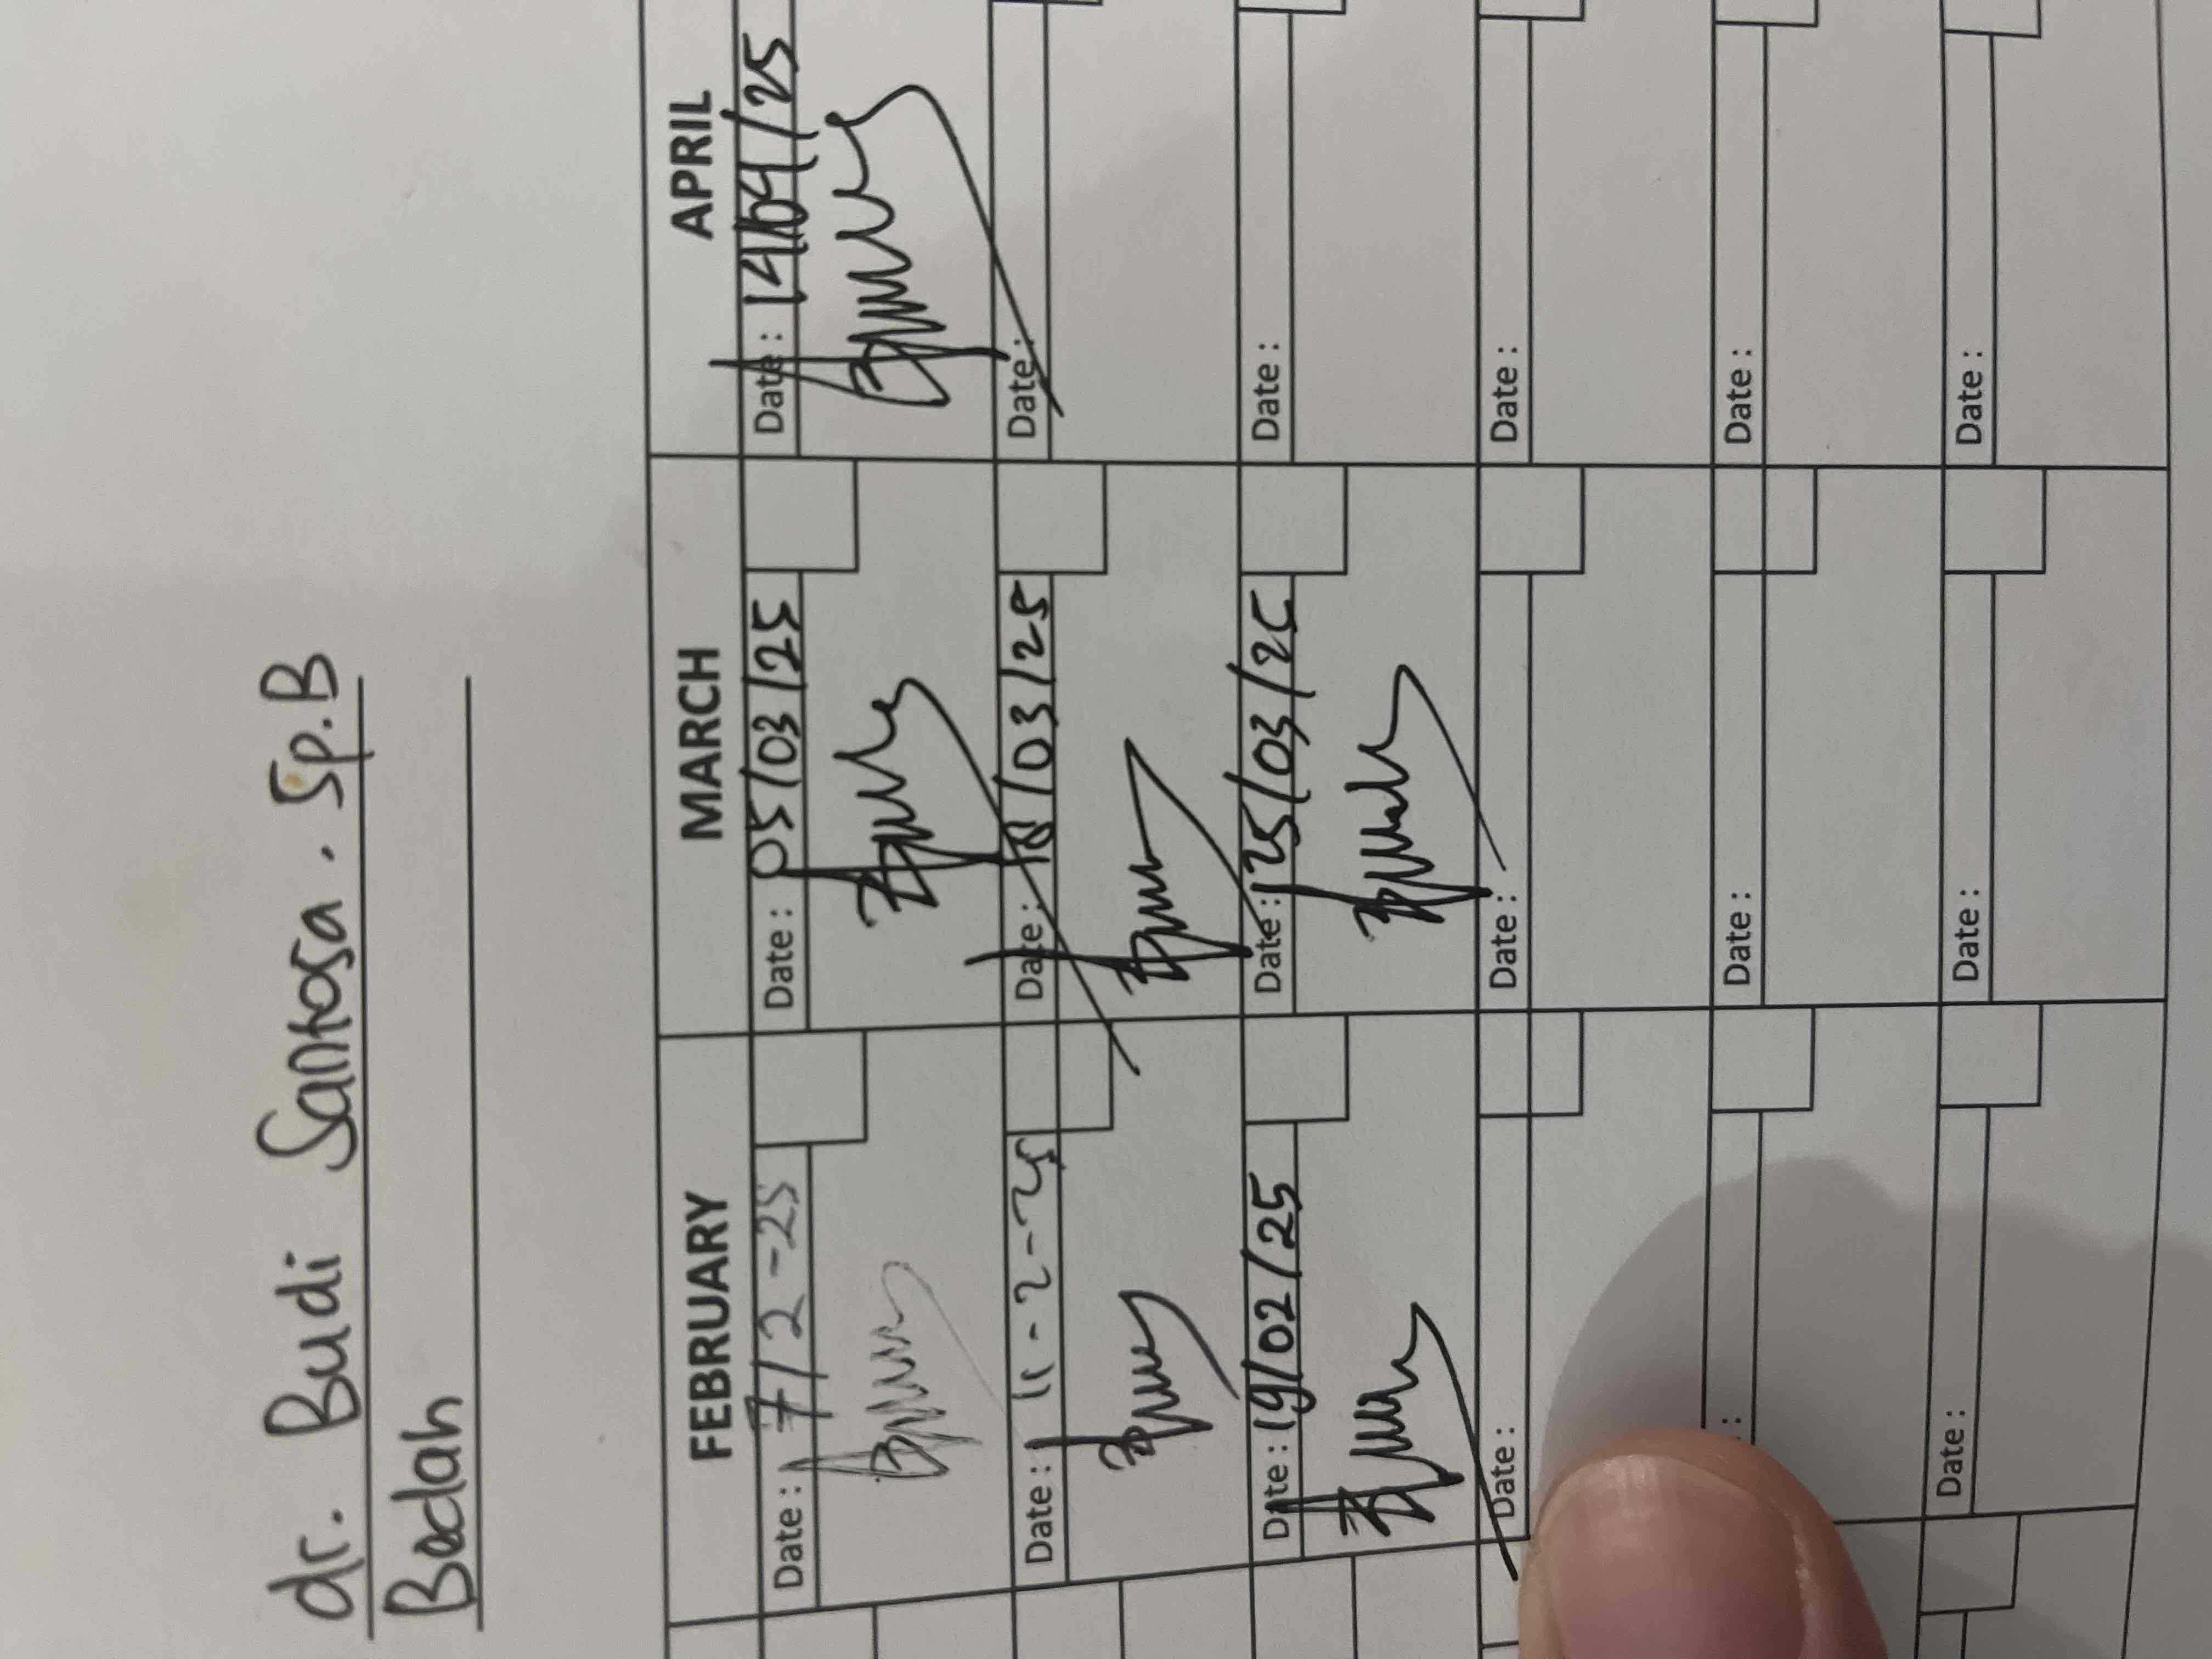 dr. Budi Santosa. Sp.B
Bedah
FEBRUARY MARCH APRIL
Date: 7/2-25 Date: 05/03/25 Date: 14/04/25
Date: 11-2-25 Date: 18/03/25 Date:
Date: 19/02/25 Date: 25/03/25 Date:
Date: Date: Date:
: Date: Date:
Date: Date: Date: